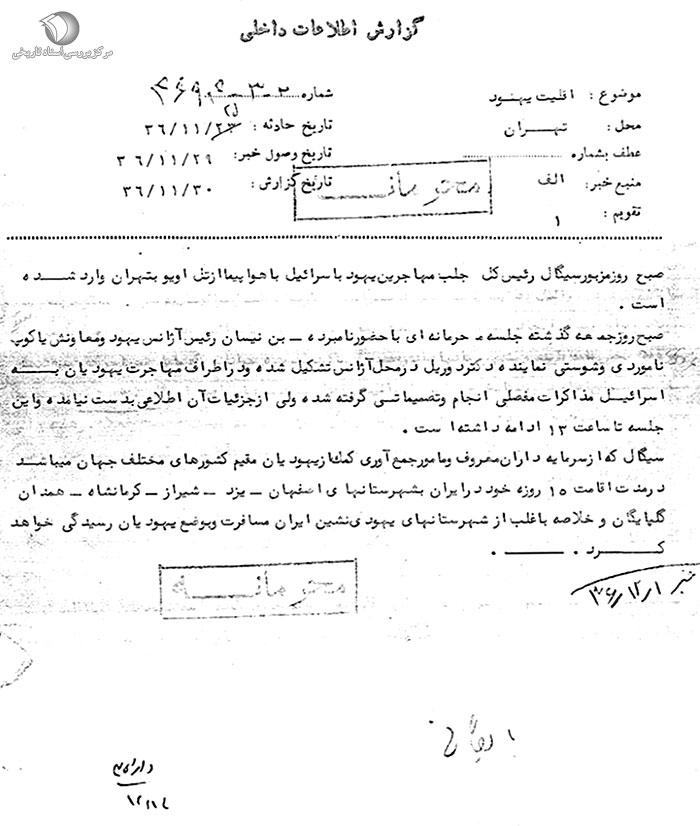 مرکز بررسی اسناد تاریخی
گزارش اطلاعات داخلی
موضوع : اقلیت یهود
شماره
محل : تهـــران
تاریخ حادثه : ۳۶/۱۱/
عطف بشماره
تاریخ وصول خبر: ۳۶/۱۱/۲۹
منبع خبر: الف
تاریخ گزارش : ۳۶/۱۱/۳۰
محرمانــــه
تقویم : ۱
صبح روز مزبور سیگال رئیس کل جلب مهاجرین یهود باسرائیل با هواپیما از تل اویو بتهران وارد شـــده
است .
صبح روز جمعه گذشته جلسه محرمانه ای با حضور نامبرده ـ بن نیسان رئیس آژانس یهود ومعاونش یاکوب
ناموردی وشوستی نماینده دکتر دوریل در محل آژانس تشکیل شده ودر اطراف مهاجرت یهودیان بـــه
اسرائیـل مذاکرات مفصلی انجام وتصمیماتی گرفته شده ولی از جزئیات آن اطلاعی بدست نیامده واین
جلسه تا ساعت ۱۳ ادامه داشته است .
سیگال که از سرمایه داران معروف ومامور جمع آوری کمک از یهودیان مقیم کشورهای مختلف جهان میباشد
در مدت اقامت ۱۵ روزه خود در ایران بشهرستانهای اصفهان ـ یزد ـ شیراز ـ کرمانشاه ـ همدان
گلپایگان و خلاصه باغلب از شهرستانهای یهودی نشین ایران مسافرت وبوضع یهودیان رسیدگی خواهد
کــــرد . ــــــ .
محرمانــــه